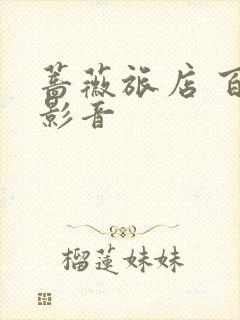 蔷薇旅店 百
影音
榴莲妹妹